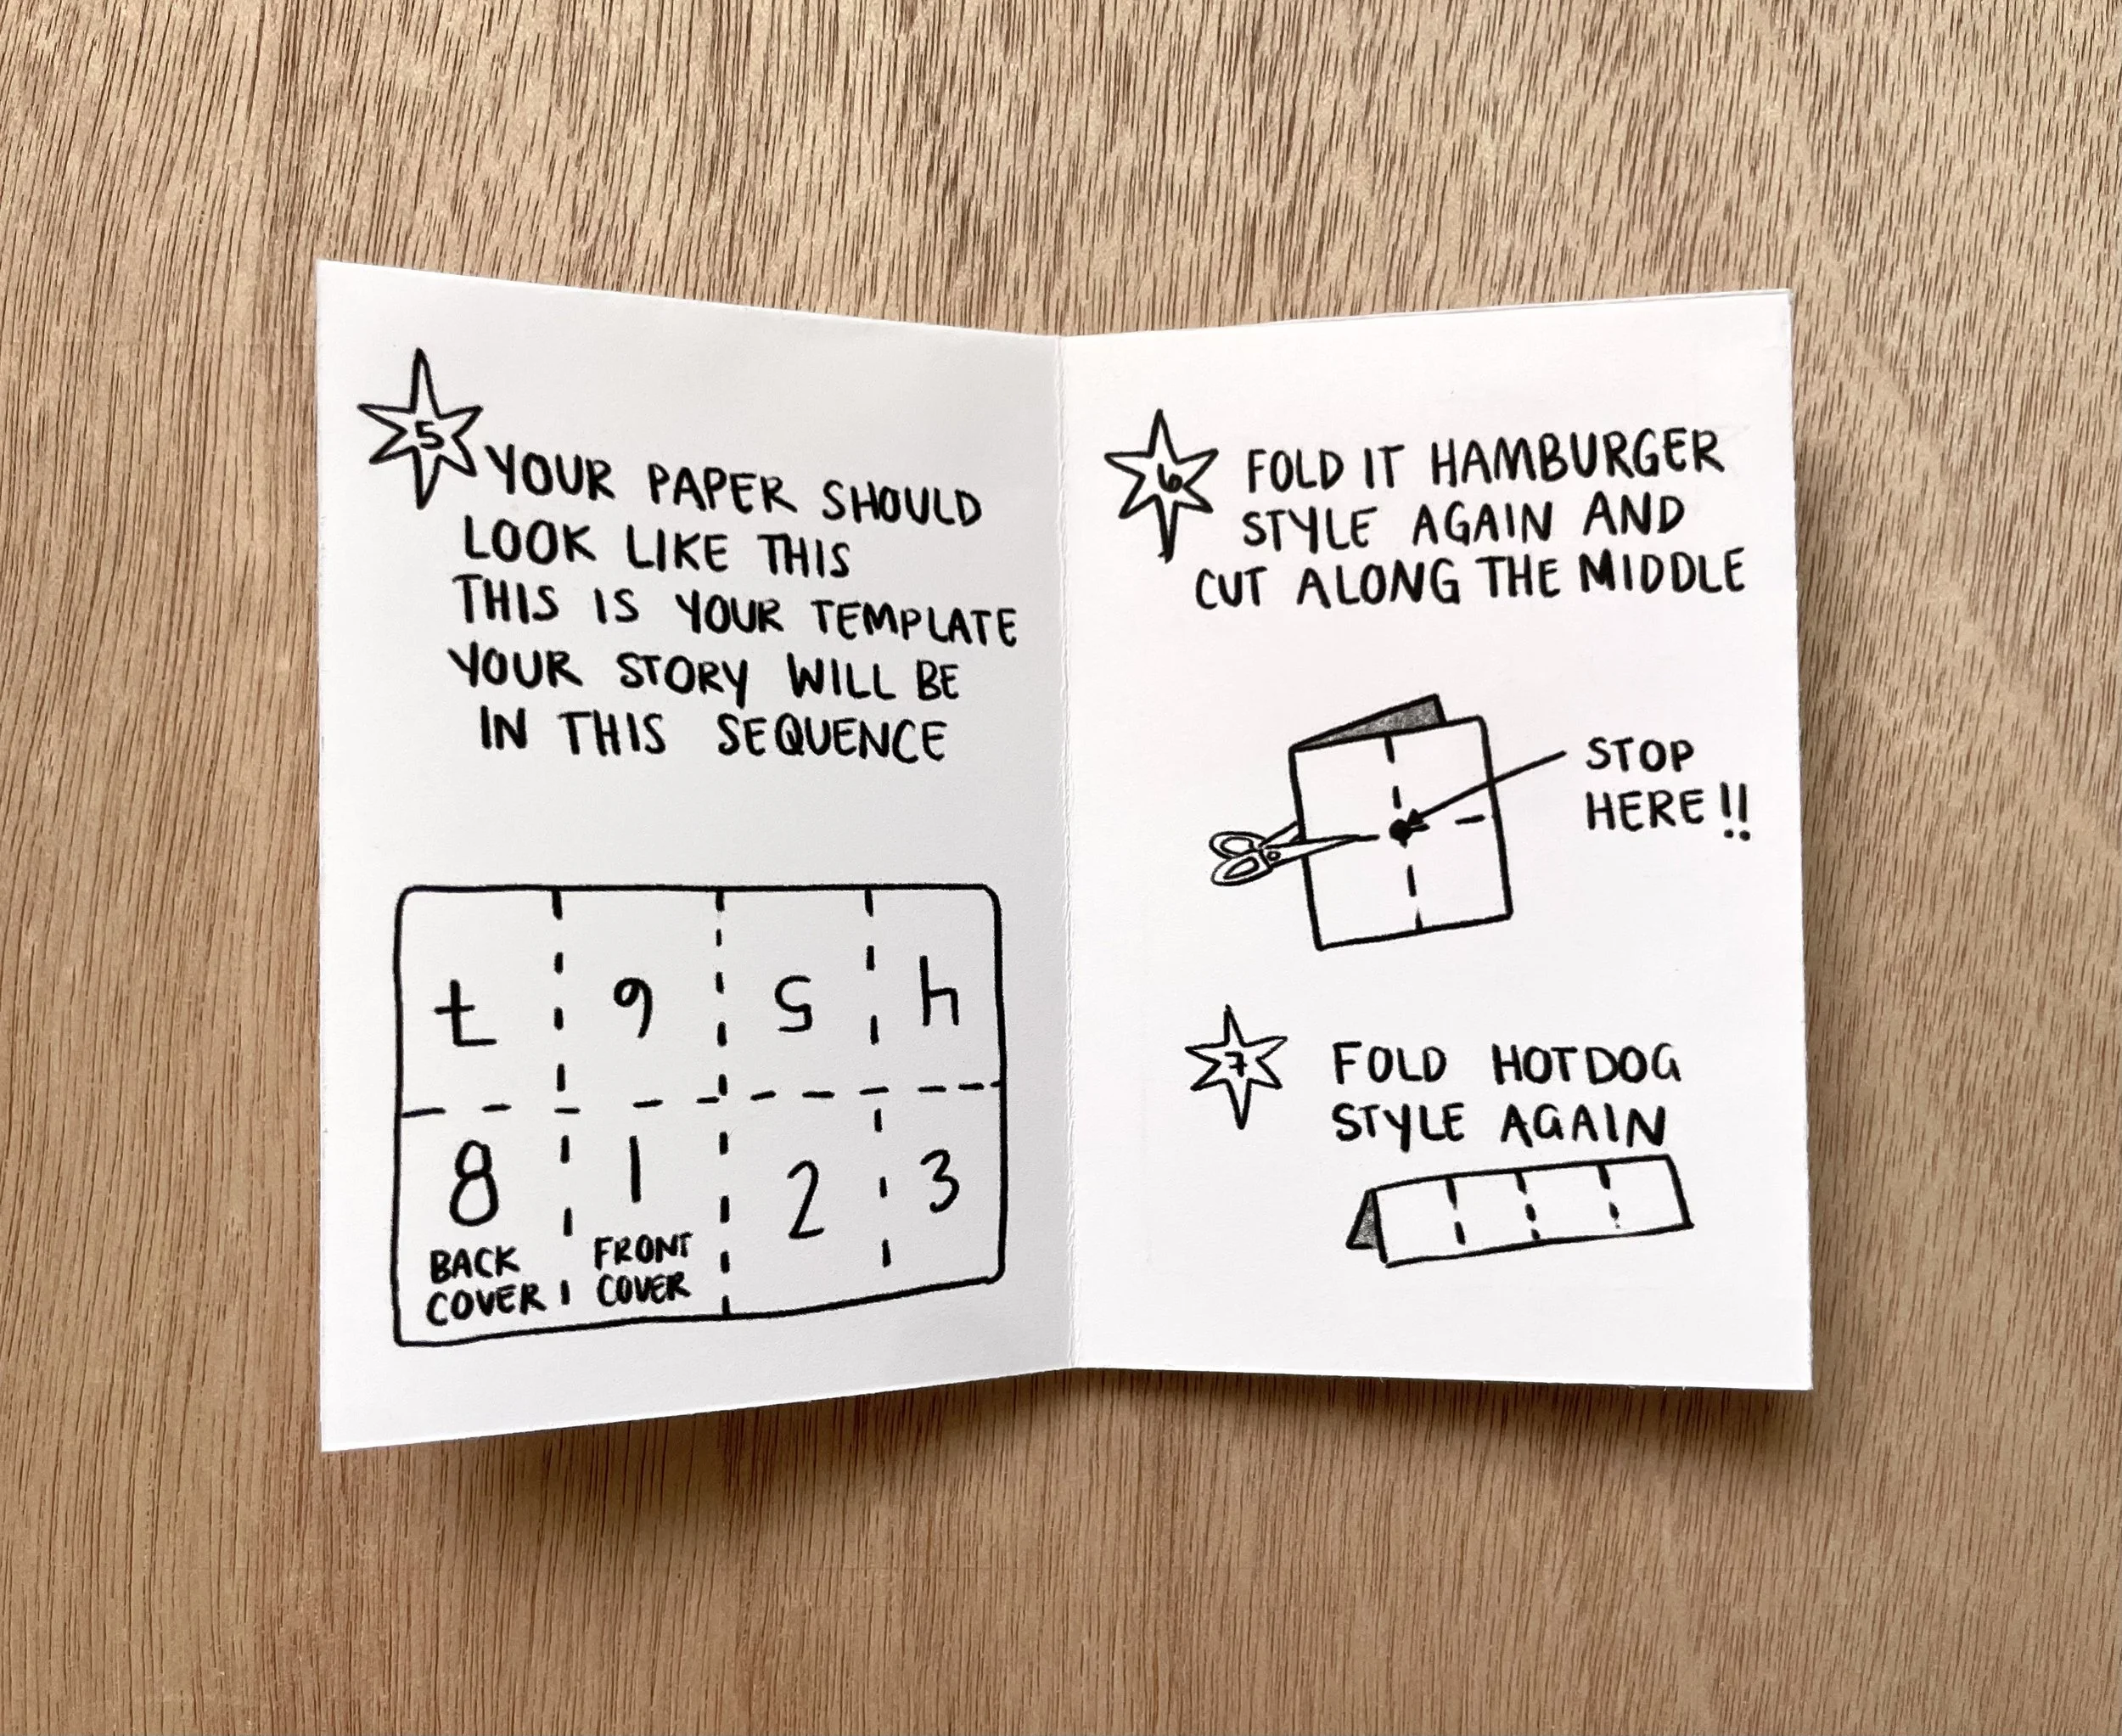 5
YOUR PAPER SHOULD
LOOK LIKE THIS
THIS IS YOUR TEMPLATE
YOUR STORY WILL BE
IN THIS SEQUENCE
7 6 5 4
8 1 2 3
BACK COVER
FRONT COVER
6
FOLD IT HAMBURGER
STYLE AGAIN AND
CUT ALONG THE MIDDLE
STOP
HERE!!
7
FOLD HOTDOG
STYLE AGAIN